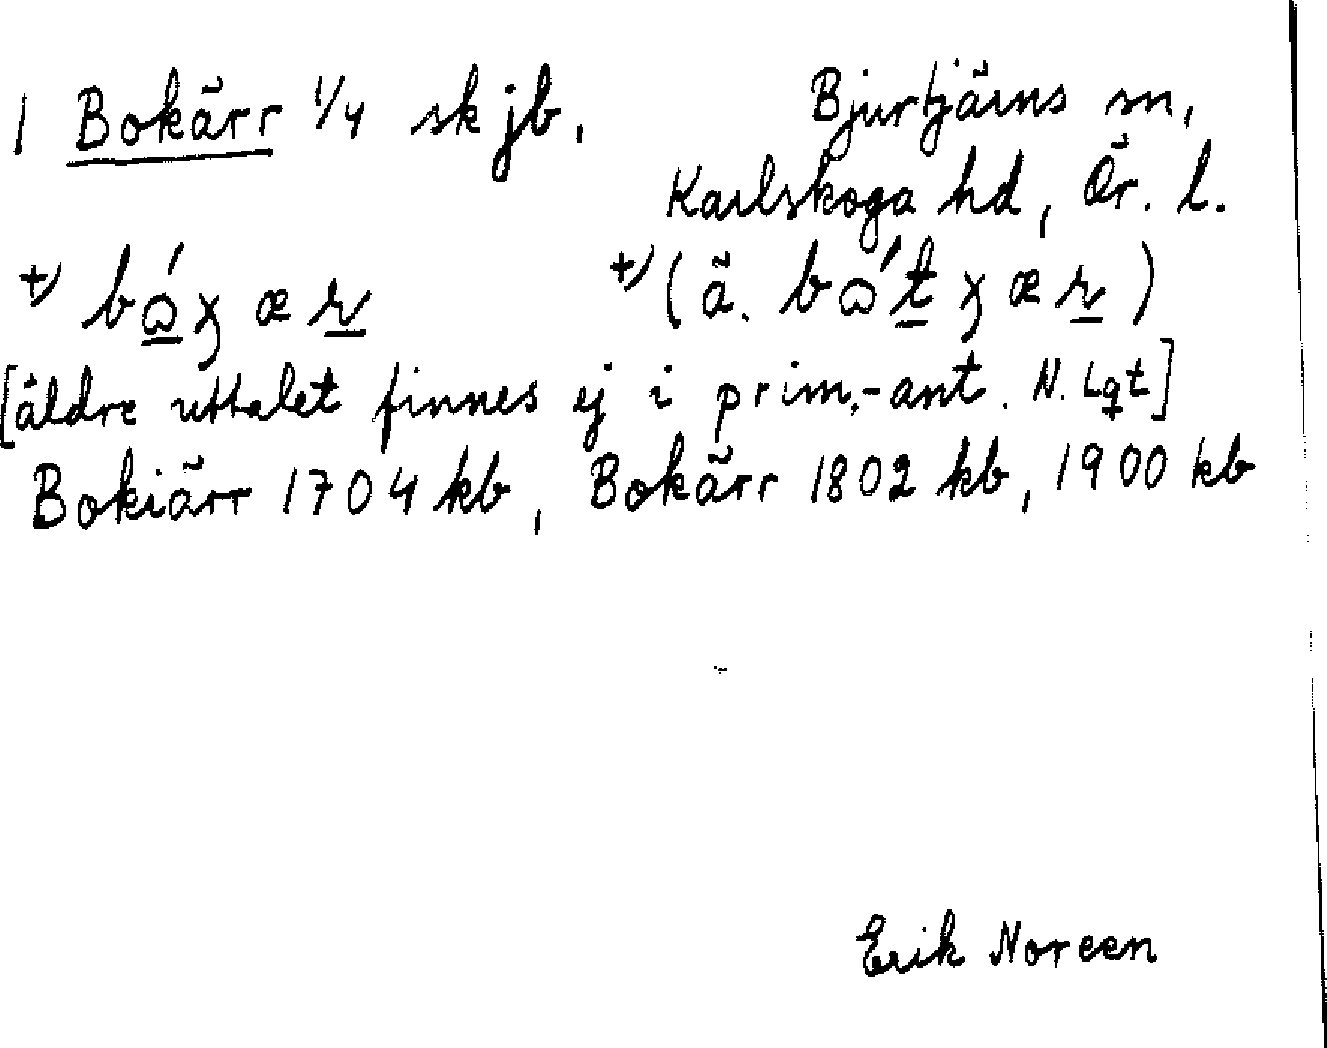 1 Bokärr 1/4 sk jb.
Bjurtjärns sn,
Karlskoga hd, Ör. l.
t) bɷ́ʒær t) (ä. bɷ́tʒær)
[äldre uttalet finnes ej i prim.-ant. N. Lqt]
Bokiärr 1704 kb, Bokärr 1802 kb, 1900 kb
Erik Noreen